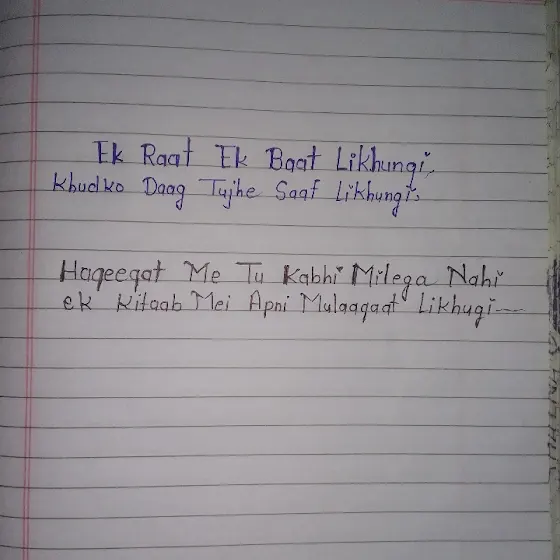 Ek Raat Ek Baat Likhungi,
Khudko Daag Tujhe Saaf Likhungi,
Haqeeqat Me Tu Kabhi Milega Nahi
ek Kitaab Mei Apni Mulaaqaat Likhugi—